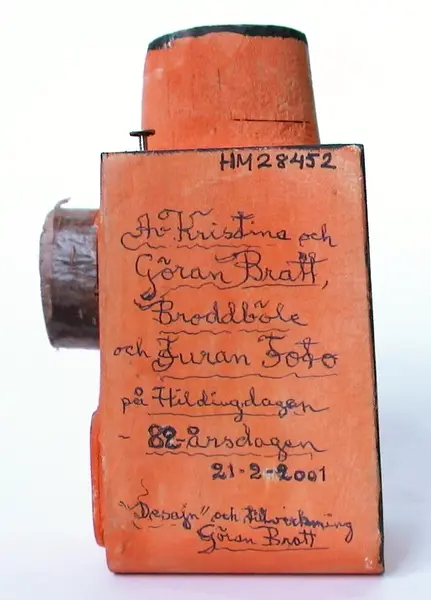 HM28452
Av Kristina och
Göran Bratt,
Broddböle
och Furan Foto
på Hildingdagen
- 82-årsdagen
21-2-2001
"Desajn" och tillvirkning
Göran Bratt